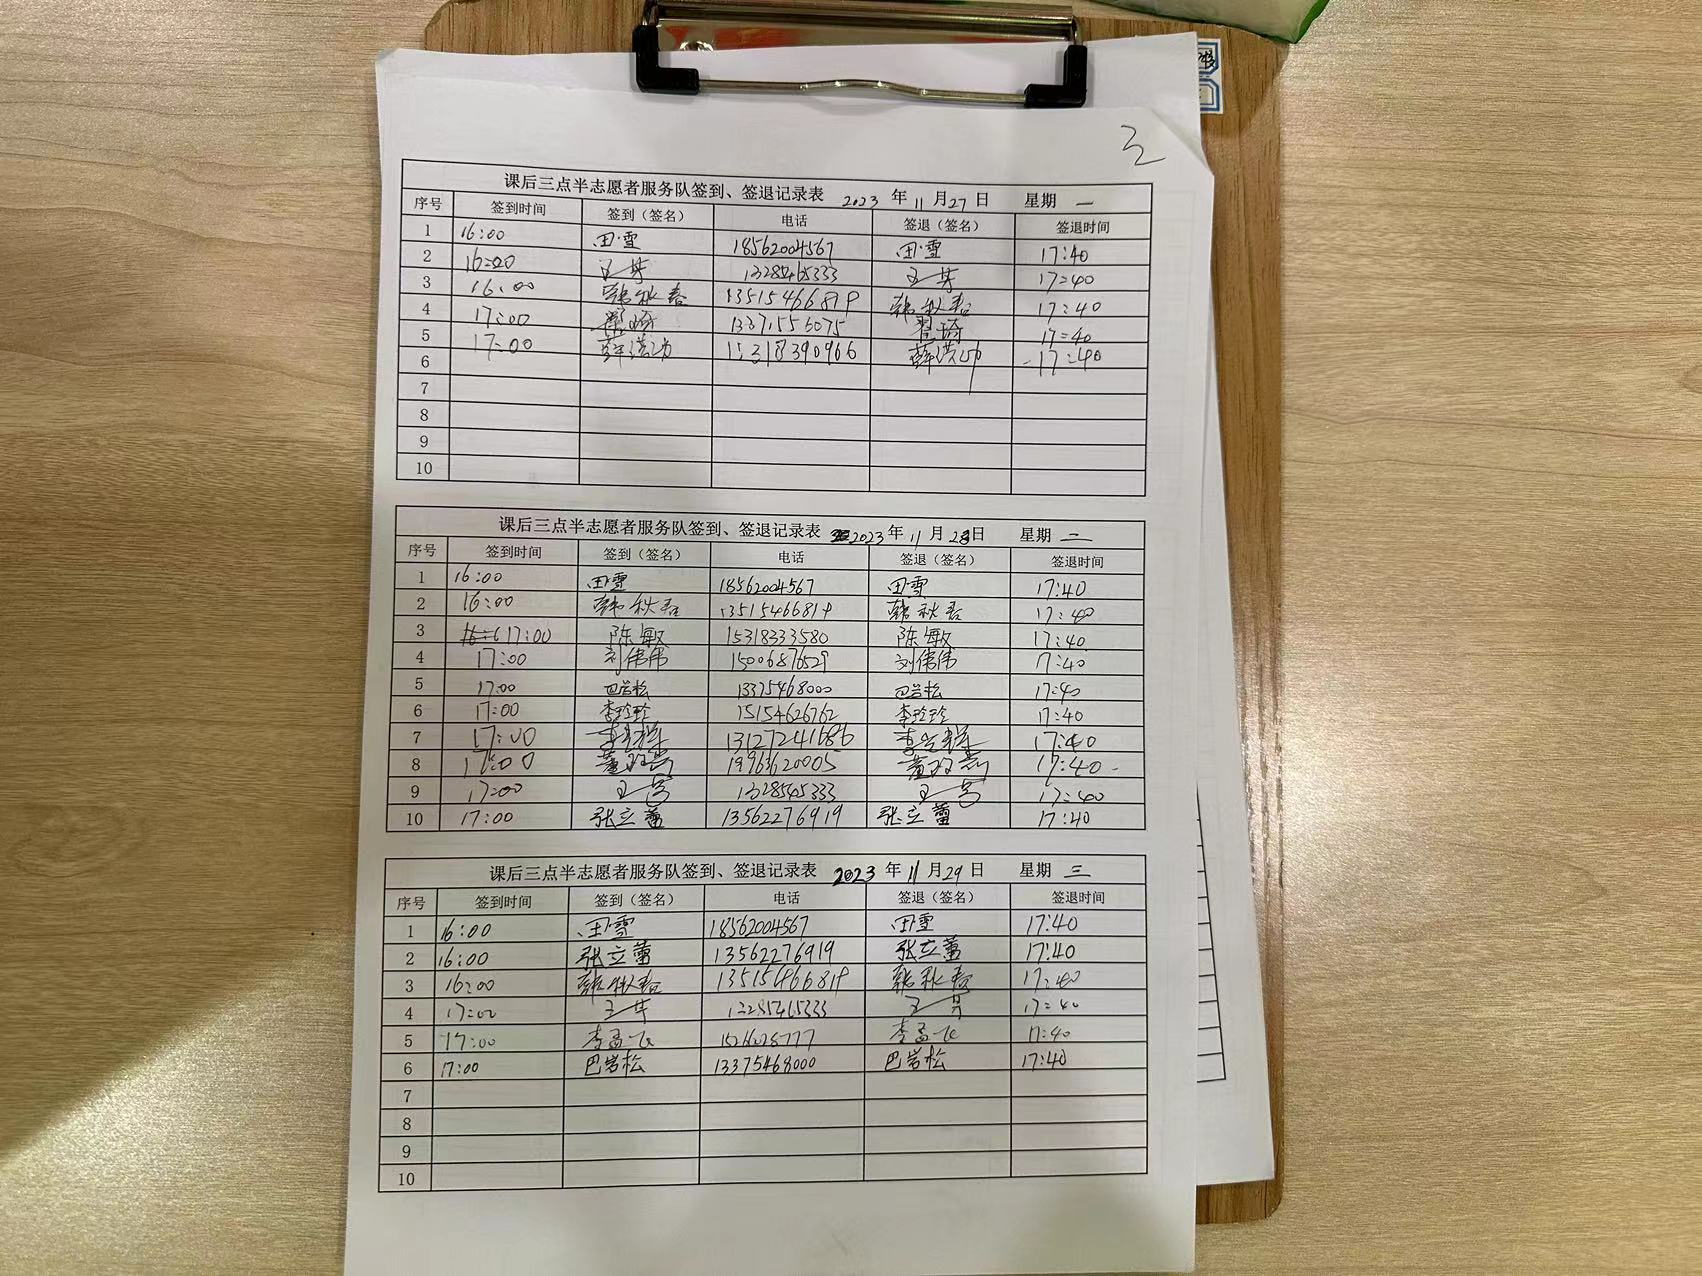 课后三点半志愿者服务队签到、签退记录表 2023 年 11 月 27 日 星期 一
序号 签到时间 签到（签名） 电话 签退（签名） 签退时间
1 16:00 田雪 18562004567 田雪 17:40
2 16:00 王芳 王芳 17:40
3 16:00 韩秋春 13515466819 韩秋春 17:40
4 17:00 17:40
5 17:00 薛洪功 15318390966 17:40
6
7
8
9
10
课后三点半志愿者服务队签到、签退记录表 2023 年 11 月 28 日 星期 二
序号 签到时间 签到（签名） 电话 签退（签名） 签退时间
1 16:00 田雪 18562004567 田雪 17:40
2 16:00 韩秋春 13515466819 韩秋春 17:40
3 17:00 陈敏 15318333580 陈敏 17:40
4 17:00 刘伟伟 15006876529 刘伟伟 17:40
5 17:00 巴岩松 13375468000 巴岩松 17:40
6 17:00 李玲玲 15154626762 李玲玲 17:40
7 17:00 13127241686 17:40
8 17:00 19963620005 17:40
9 17:00 17:40
10 17:00 张立蕾 13562276919 张立蕾 17:40
课后三点半志愿者服务队签到、签退记录表 2023 年 11 月 29 日 星期 三
序号 签到时间 签到（签名） 电话 签退（签名） 签退时间
1 16:00 田雪 18562004567 田雪 17:40
2 16:00 张立蕾 13562276919 张立蕾 17:40
3 16:00 韩秋春 13515466819 韩秋春 17:40
4 17:00 王芳 17:40
5 17:00 李孟飞 李孟飞 17:40
6 17:00 巴岩松 13375468000 巴岩松 17:40
7
8
9
10